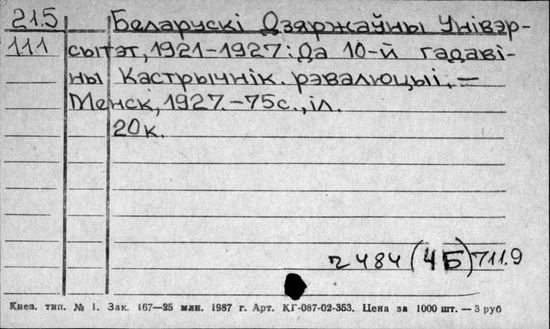 21.5 Беларускі Дзяржаўны Унівэр-
111 сытэт, 1921-1927: Да 10-й гадаві-
ны Кастрычнік. рэвалюцыі. —
Менск, 1927. - 75с., іл.
20к.
ч 484 (4Б) 711.9
Киев. тип. № 1. Зак. 167—25 млн. 1987 г. Арт. КГ-087-02-353. Цена за 1000 шт. — 3 руб